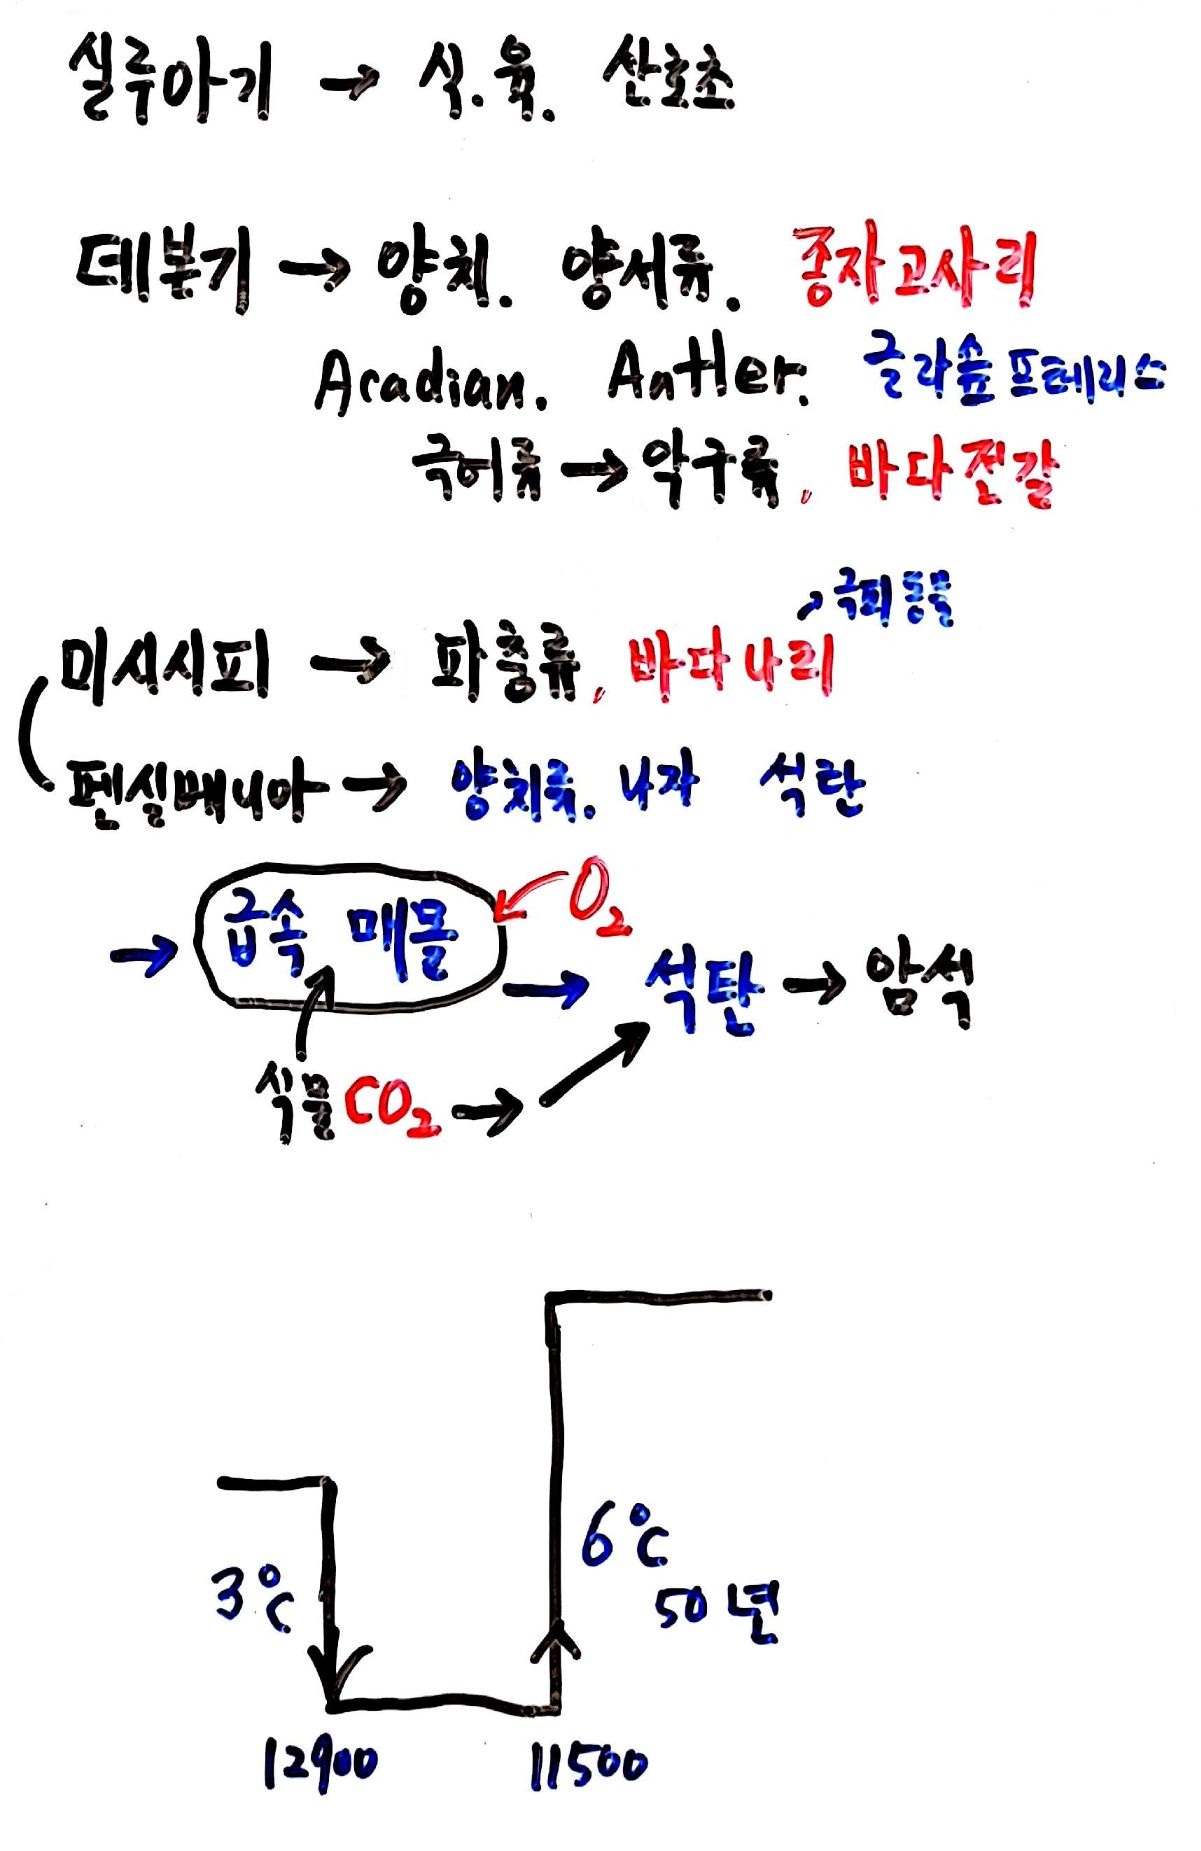 실루아기 → 식.육. 산호초
데본기 → 양치. 양서류. 종자고사리
Acadian. Antler. 글라솝프테리스
극어류 → 악구류, 바다전갈
↗ 극피동물
미시시피 → 파충류, 바다나리
펜실베니아 → 양치류. 나자 석탄
→ 급속 매몰 ← O₂
→ 석탄 → 암석
식물 CO₂ →
6℃
3℃ 50년
12900 11500